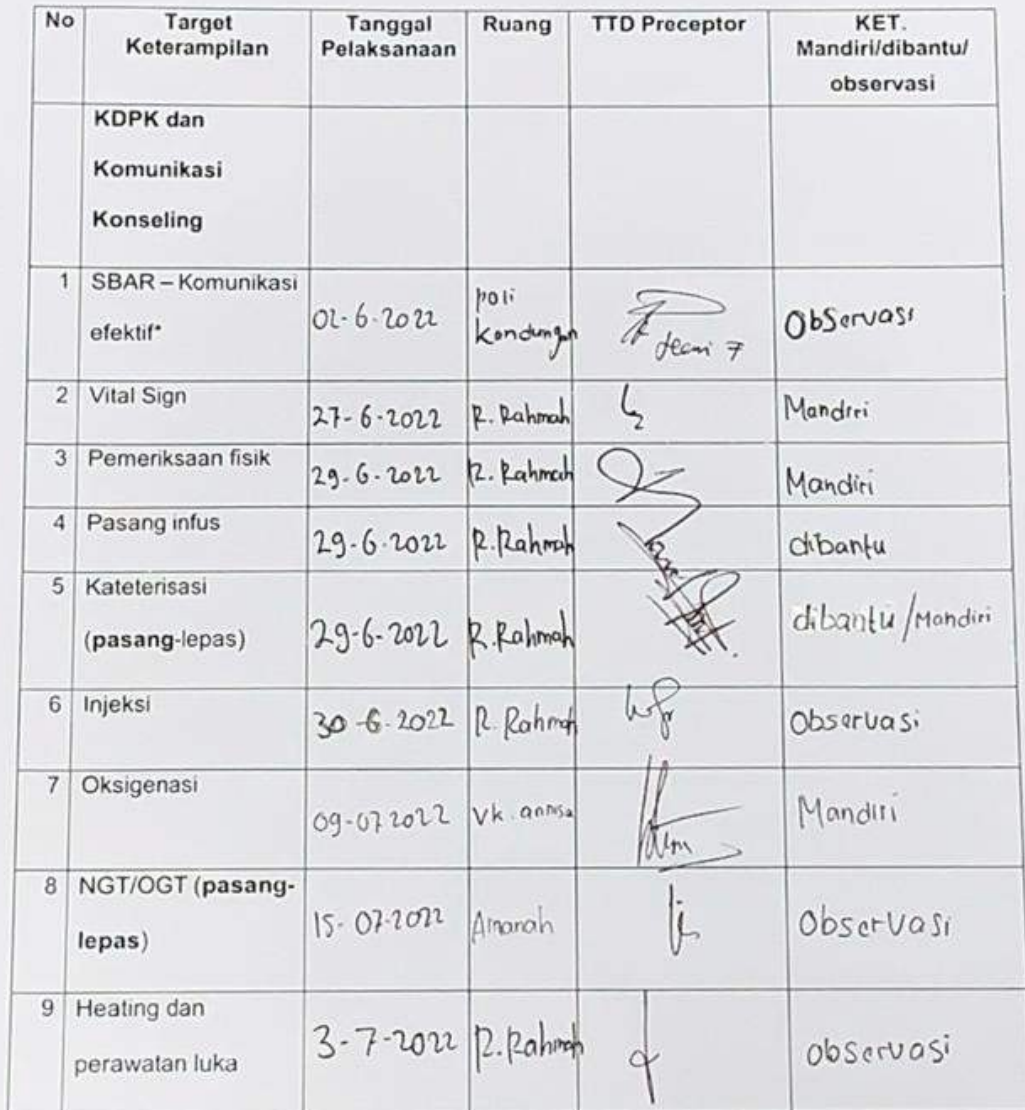 No Target Keterampilan Tanggal Pelaksanaan Ruang TTD Preceptor KET. Mandiri/dibantu/ observasi
KDPK dan
Komunikasi
Konseling
1 SBAR – Komunikasi efektif* 02-6-2022 poli Kandungan Observasi
2 Vital Sign 27-6-2022 R. Rahmah Mandiri
3 Pemeriksaan fisik 29-6-2022 R. Rahmah Mandiri
4 Pasang infus 29-6-2022 R. Rahmah dibantu
5 Kateterisasi (pasang-lepas) 29-6-2022 R. Rahmah dibantu/Mandiri
6 Injeksi 30-6-2022 R. Rahmah Observasi
7 Oksigenasi 09-07 2022 Vk. annisa Mandiri
8 NGT/OGT (pasang-lepas) 15-07-2022 Amanah Observasi
9 Heating dan perawatan luka 3-7-2022 R. Rahmah observasi